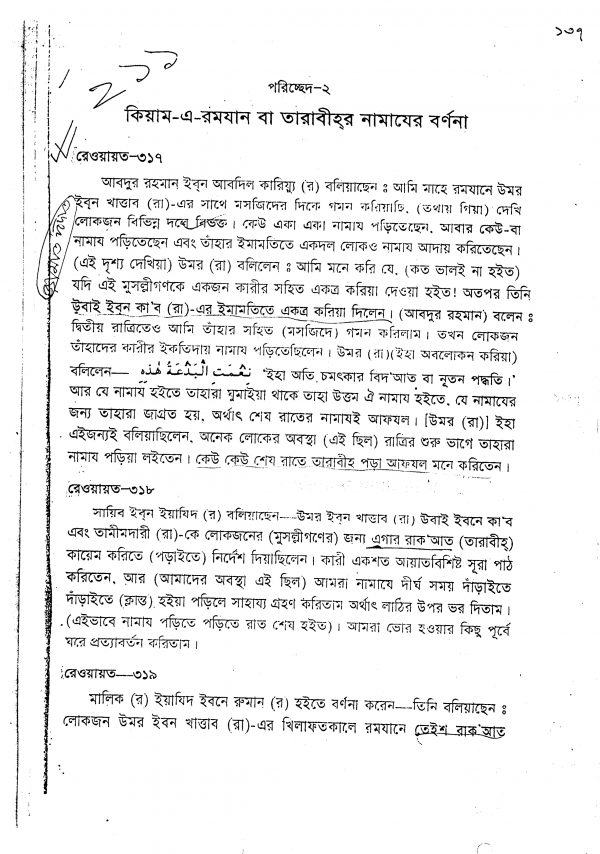 ১৩৭
পরিচ্ছেদ-২
কিয়াম-এ-রমযান বা তারাবীহ্‌র নামাযের বর্ণনা
রেওয়ায়ত-৩১৭
আবদুর রহমান ইব্‌ন আবদিল কারিয়্যু (র) বলিয়াছেন : আমি মাহে রমযানে উমর
ইব্‌ন খাত্তাব (রা)-এর সাথে মসজিদের দিকে গমন করিয়াছি, (তথায় গিয়া) দেখি
লোকজন বিভিন্ন দলে বিভক্ত। কেউ একা একা নামায পড়িতেছেন, আবার কেউ-বা
নামায পড়িতেছেন এবং তাঁহার ইমামতিতে একদল লোকও নামায আদায় করিতেছেন।
(এই দৃশ্য দেখিয়া) উমর (রা) বলিলেন : আমি মনে করি যে, (কত ভালই না হইত)
যদি এই মুসল্লীগণকে একজন কারীর সহিত একত্র করিয়া দেওয়া হইত! অতপর তিনি
উবাই ইব্‌ন কা'ব (রা)-এর ইমামতিতে একত্র করিয়া দিলেন। (আবদুর রহমান) বলেন :
দ্বিতীয় রাত্রিতেও আমি তাঁহার সহিত (মসজিদে) গমন করিলাম। তখন লোকজন
তাঁহাদের কারীর ইকতিদায় নামায পড়িতেছিলেন। উমর (রা)(ইহা অবলোকন করিয়া)
বলিলেন— نِعْمَتِ الْبِدْعَةُ هٰذِهِ 'ইহা অতি চমৎকার বিদ'আত বা নূতন পদ্ধতি।'
আর যে নামায হইতে তাহারা ঘুমাইয়া থাকে তাহা উত্তম ঐ নামায হইতে, যে নামাযের
জন্য তাহারা জাগ্রত হয়, অর্থাৎ শেষ রাতের নামাযই আফযল। [উমর (রা)] ইহা
এইজন্যই বলিয়াছিলেন, অনেক লোকের অবস্থা (এই ছিল) রাত্রির শুরু ভাগে তাহারা
নামায পড়িয়া লইতেন। কেউ কেউ শেষ রাতে তারাবীহ পড়া আফযল মনে করিতেন।
রেওয়ায়ত-৩১৮
সায়িব ইব্‌ন ইয়াযিদ (র) বলিয়াছেন—উমর ইব্‌ন খাত্তাব (রা) উবাই ইবনে কা'ব
এবং তামীমদারী (রা)-কে লোকজনের (মুসল্লীগণের) জন্য এগার রাক'আত (তারাবীহ্)
কায়েম করিতে (পড়াইতে) নির্দেশ দিয়াছিলেন। কারী একশত আয়াতবিশিষ্ট সূরা পাঠ
করিতেন, আর (আমাদের অবস্থা এই ছিল) আমরা নামাযে দীর্ঘ সময় দাঁড়াইতে
দাঁড়াইতে (ক্লান্ত) হইয়া পড়িলে সাহায্য গ্রহণ করিতাম অর্থাৎ লাঠির উপর ভর দিতাম।
(এইভাবে নামায পড়িতে পড়িতে রাত শেষ হইত)। আমরা ভোর হওয়ার কিছু পূর্বে
ঘরে প্রত্যাবর্তন করিতাম।
রেওয়ায়ত—৩১৯
মালিক (র) ইয়াযিদ ইবনে রুমান (র) হইতে বর্ণনা করেন—তিনি বলিয়াছেন :
লোকজন উমর ইবন খাত্তাব (রা)-এর খিলাফতকালে রমযানে তেইশ রাক'আত